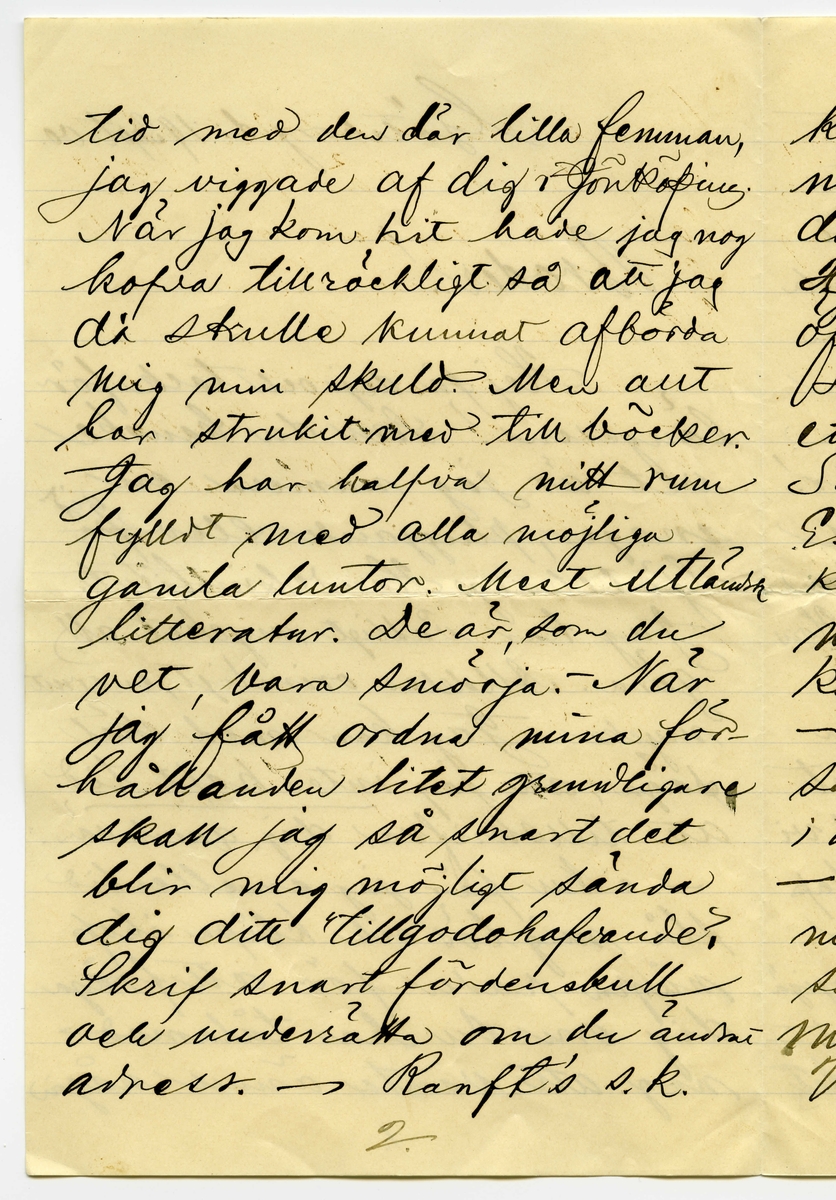 tid med den där lilla femman,
jag viggade af dig i Jönköping.
När jag kom hit hade jag nog
kofva tillräckligt så att jag
då skulle kunnat afbörda
mig min skuld. Men allt
har strukit med till böcker.
Jag har halfva mitt rum
fylldt med alla möjliga
gamla luntor. Mest utländsk
litteratur. De är, som du
vet, bara smörja. – När
jag fått ordna mina för-
hållanden litet grundligare
skall jag så snart det
blir mig möjligt sända
dig ditt "tillgodohafvande".
Skrif snart fördenskull
och underrätta om du ändrat
adress. — Ranft's s.k.
2.